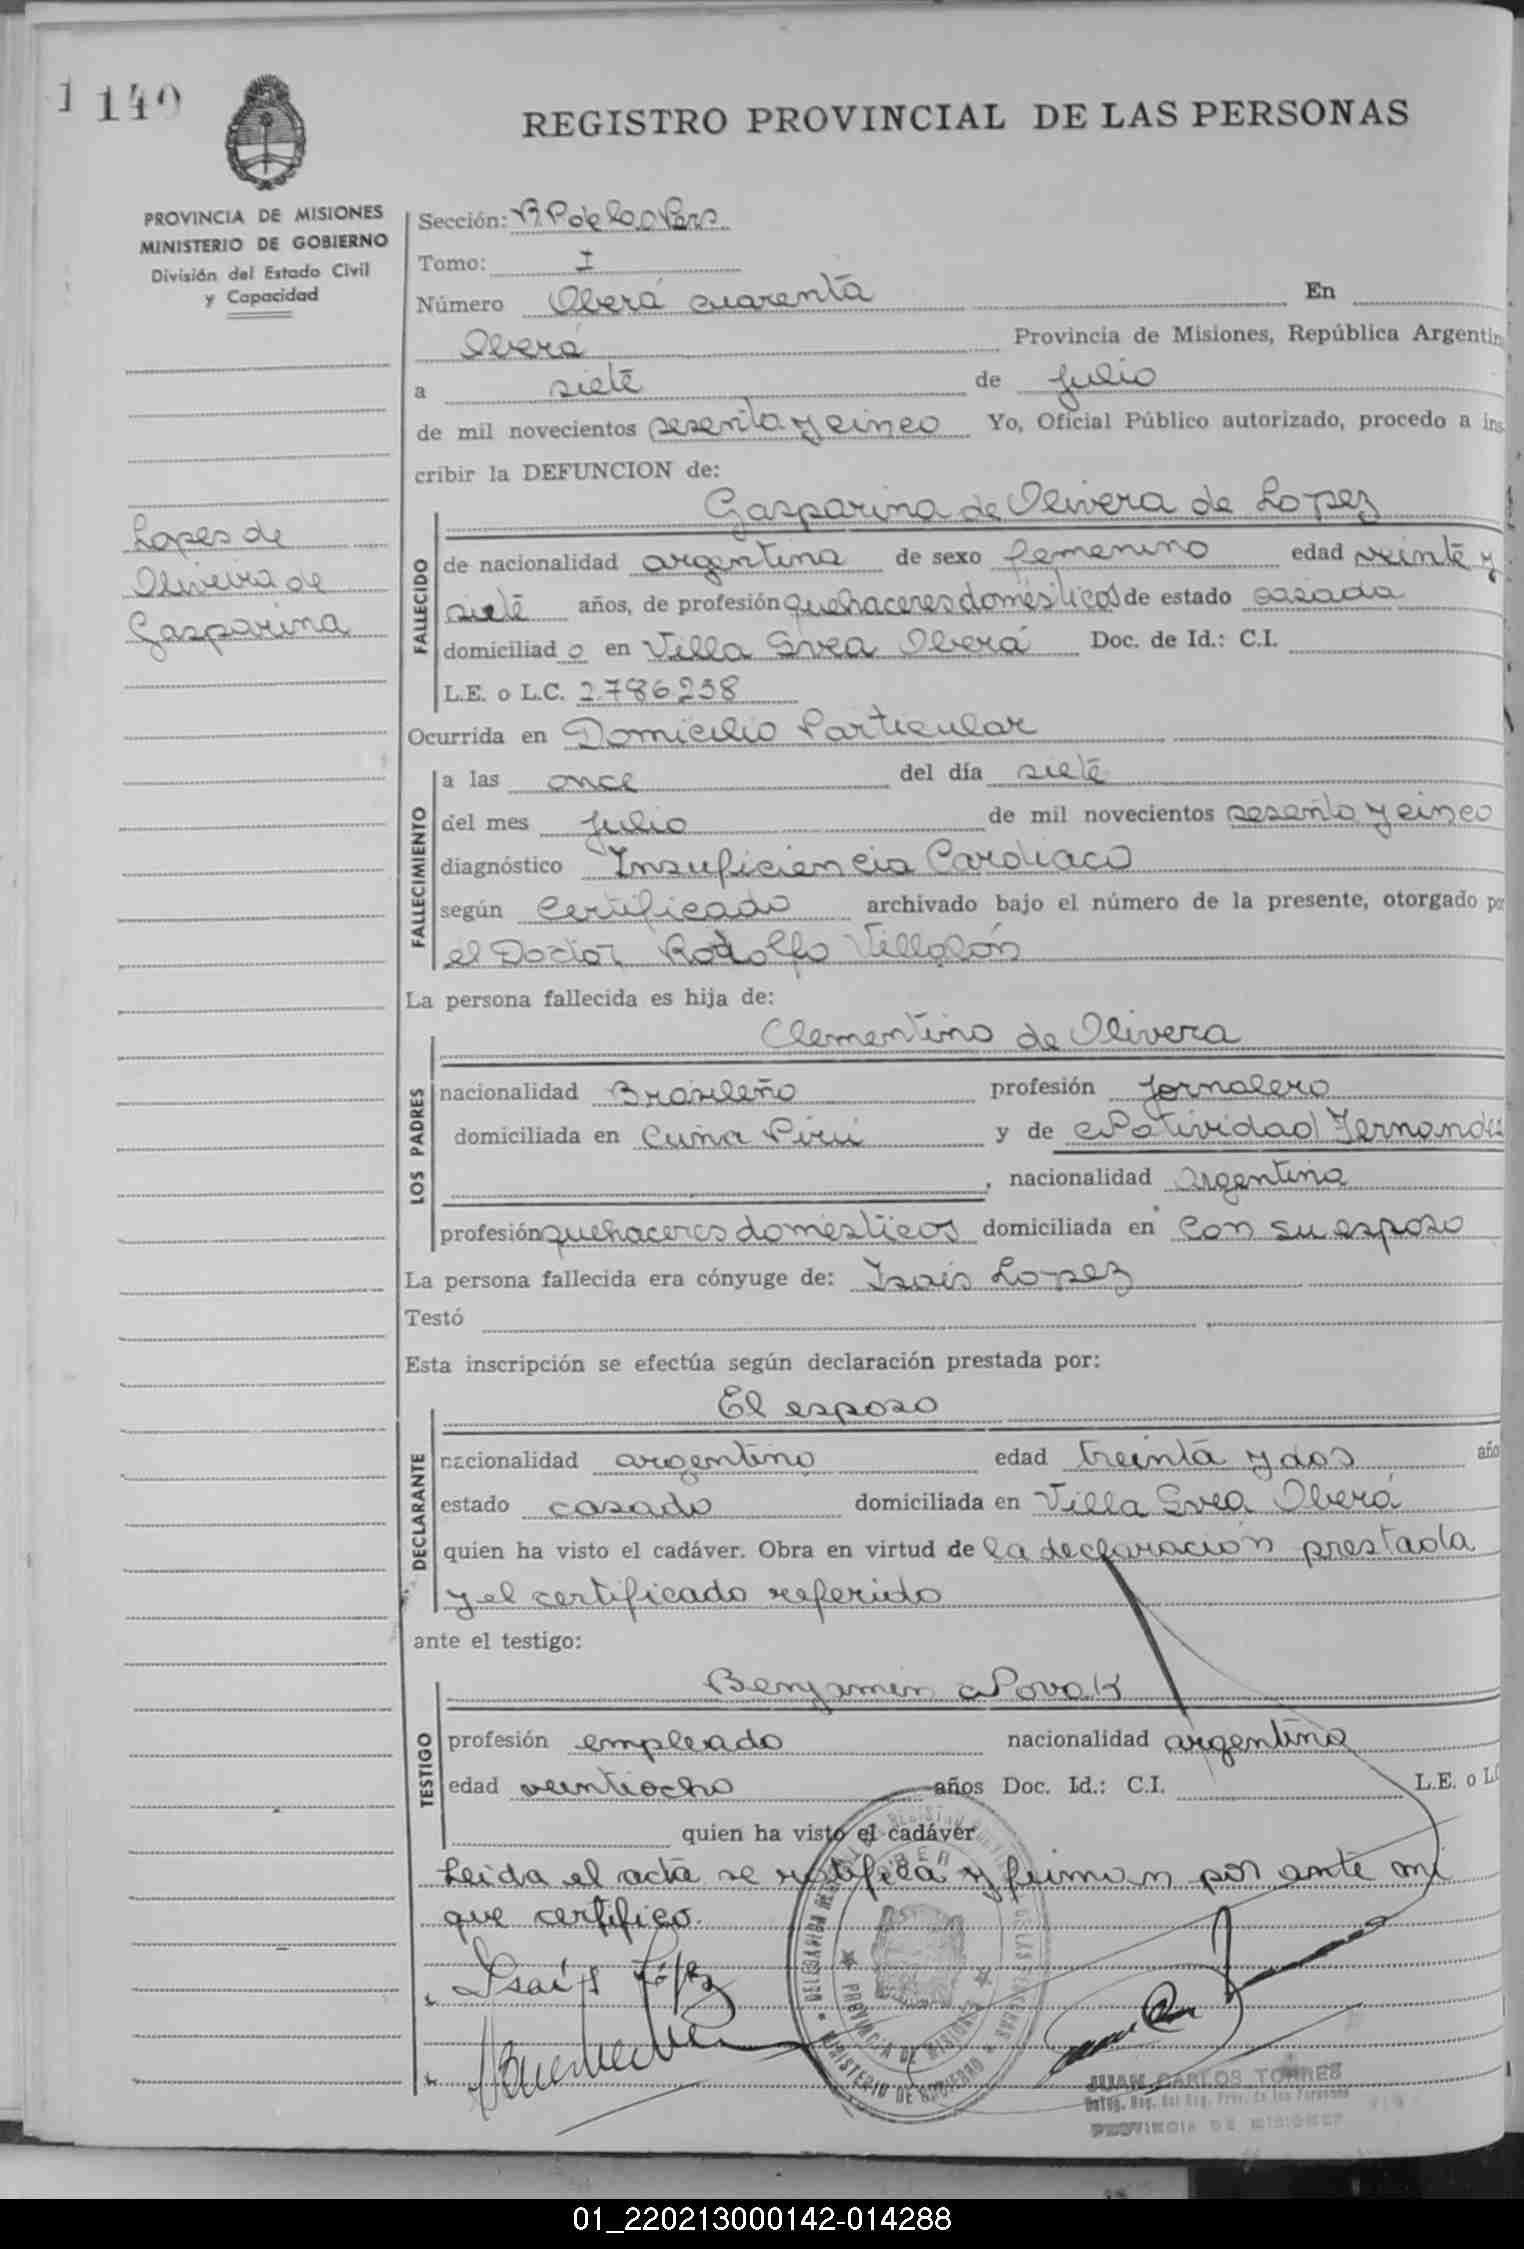 1 140
REGISTRO PROVINCIAL DE LAS PERSONAS
PROVINCIA DE MISIONES
MINISTERIO DE GOBIERNO
División del Estado Civil
y Capacidad
Lopes de
Oliveira de
Gasparina
Sección: R. P de las Pers
Tomo: I
Número Oberá cuarenta En
Oberá Provincia de Misiones, República Argentin
a siete de julio
de mil novecientos sesenta y cinco Yo, Oficial Público autorizado, procedo a ins
cribir la DEFUNCION de:
Gasparina de Olivera de Lopez
FALLECIDO
de nacionalidad argentina de sexo femenino edad veinte y
siete años, de profesión quehaceres domésticos de estado casada
domiciliad o en Villa Svea Oberá Doc. de Id.: C.I.
L.E. o L.C. 2.786.238
Ocurrida en Domicilio Particular
FALLECIMIENTO
a las once del día siete
del mes julio de mil novecientos sesenta y cinco
diagnóstico Insuficiencia Cardiaca
según Certificado archivado bajo el número de la presente, otorgado po
el Doctor Rodolfo
La persona fallecida es hija de:
Clementino de Olivera
LOS PADRES
nacionalidad Brasileño profesión Jornalero
domiciliada en Cuña Pirú y de Natividad Fernandez
, nacionalidad Argentina
profesión quehaceres domésticos domiciliada en con su esposo
La persona fallecida era cónyuge de: Isais Lopez
Testó
Esta inscripción se efectúa según declaración prestada por:
El esposo
DECLARANTE
nacionalidad argentino edad treinta y dos año
estado casado domiciliada en Villa Svea Oberá
quien ha visto el cadáver. Obra en virtud de la declaración prestada
y el certificado referido
ante el testigo:
Benjamin Novak
TESTIGO
profesión empleado nacionalidad argentina
edad veintiocho años Doc. Id.: C.I. L.E. o LC
quien ha visto el cadáver
Leida el acta se ratifica y firman por ante mi
que certifico.
Isaís López
PROVINCIA DE MISIONES
MINISTERIO DE GOBIERNO
JUAN CARLOS TORRES
PROVINCIA DE MISIONES
01_220213000142-014288